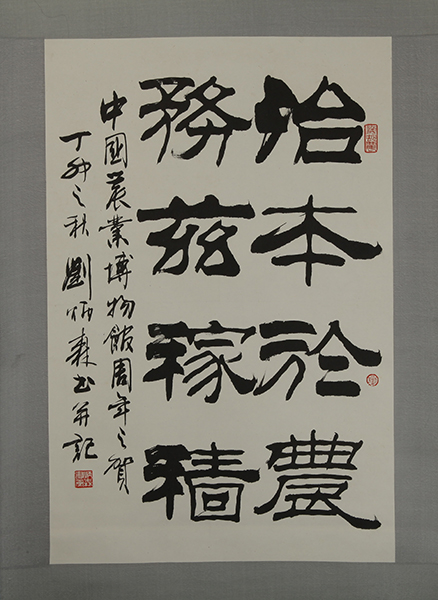 治本於農
務茲稼穡
中國農業博物館周年之賀
丁卯之秋劉炳森书并記